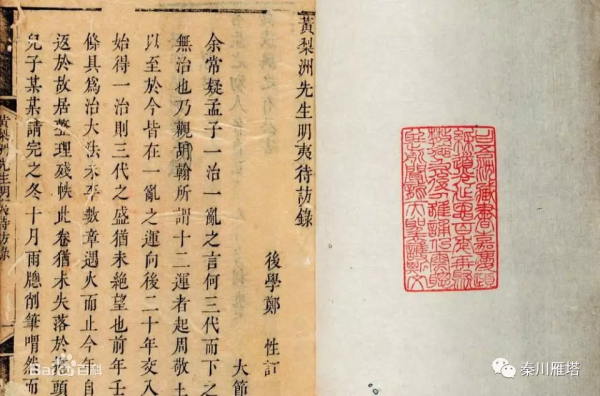 黃梨洲先生明夷待訪錄
後學鄭 性訂
大節
余常疑孟子一治一亂之言何三代而下之
無治也乃觀胡翰所謂十二運者起周敬
以至於今皆在一亂之運向後二十年交入
始得一治則三代之盛猶未絕望也前年壬
條具爲治大法未卒數章遇火而止今年自
返於故居整理殘帙此卷猶未失落於担頭
兒子某某請完之冬十月雨牕削筆喟然而
黃梨洲先生明夷待訪錄
Bai百科
秦川雁塔